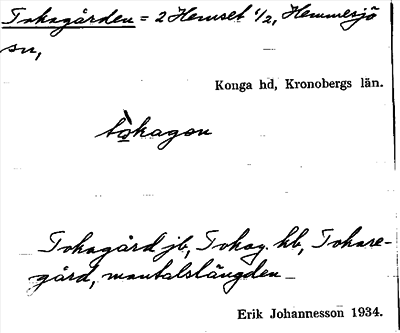 Tokagården = 2 Hemset 1/2, Hemmesjö
sn,
Konga hd, Kronobergs län.
tòkagon
Tokagård jb, Tokag. hb, Tokare-
gård, mantalslängden
Erik Johannesson 1934.